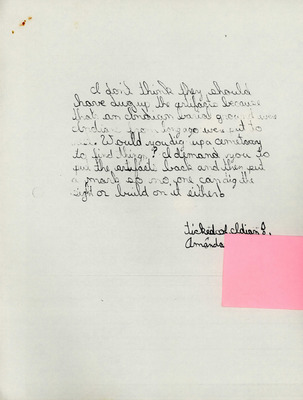 I don't think they should
have dug up the artifacts because
that an Indian burial ground were
Indians from long ago were put to
Would you dig up a cemetary
to find things? I demand you to
put the artifacts back and then put
a mark so no one can dig the
sight or build on it either
Ticked of Idian J.
Amanda